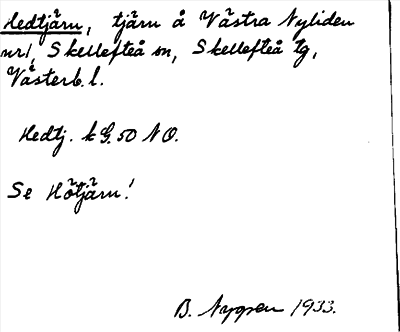 Hedtjärn, tjärn å Västra Nyliden
nr1, Skellefteå sn, Skellefteå tg,
Västerb. l.
Hedtj. k G. 50 NO.
Se Hötjärn!
B. 1933.